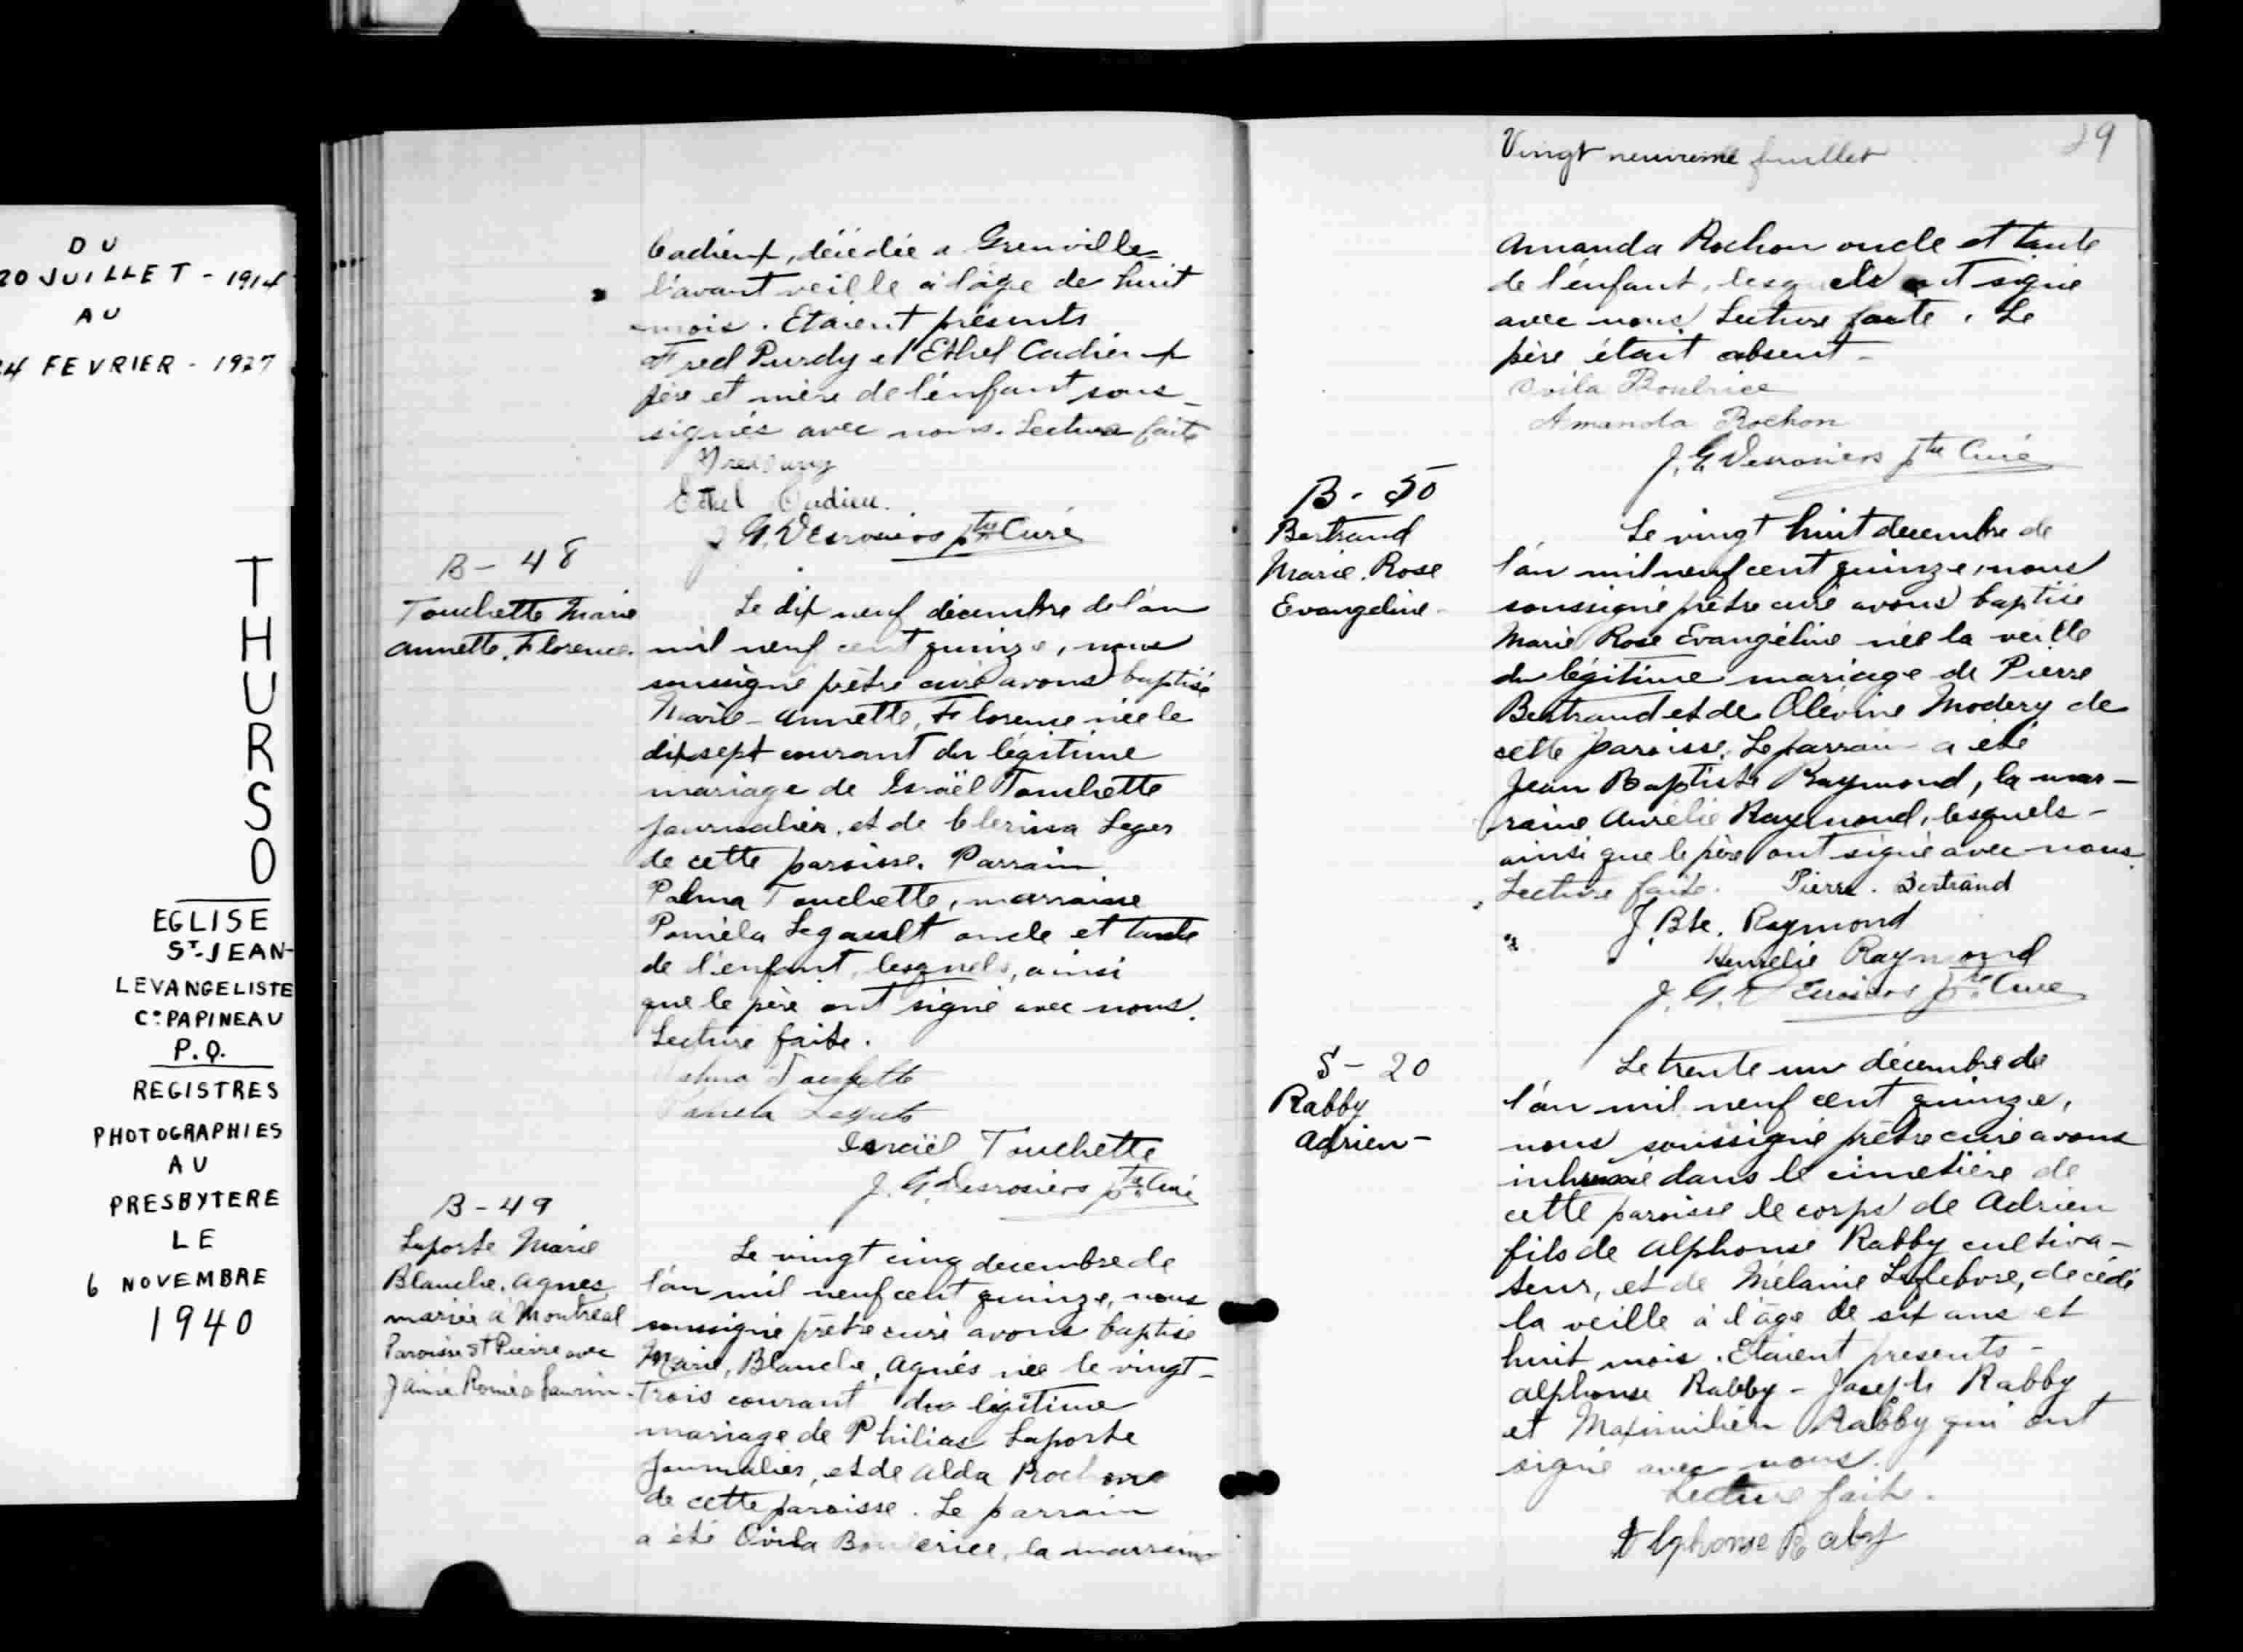 DU
20 JUILLET - 1914
AU
24 FEVRIER - 1927
THURSO
EGLISE
ST-JEAN-
LEVANGELISTE
Co PAPINEAU
P.Q.
REGISTRES
PHOTOGRAPHIES
AU
PRESBYTERE
LE
6 NOVEMBRE
1940
Cadieux, décédée a Grenville
l'avant veille à l'âge de huit
mois. Etaient présents
Fred Purdy et Ethel Cadieux
père et mère de l'enfant sous-
signés avec nous. Lecture faite
Ethel Cadieu.
J. G. Desrosiers ptre Curé
B - 48
Touchette Marie
Annette, Florence.
Le dix neuf décembre de l'an
mil neuf cent quinze, nous
soussigné prêtre curé avons baptisé
Marie-Annette, Florence née le
dix sept courant du légitime
mariage de Israël Touchette
journalier, et de Clerissa Leger
de cette paroisse. Parrain
Palma Touchette, marraine
Paméla Legault oncle et tante
de l'enfant, lesquels, ainsi
que le père ont signé avec nous.
Lecture faite.
Palma Touchette
Paméla
Israël Touchette
J. G. Desrosiers ptre Curé
B - 49
Laporte Marie
Blanche, Agnes
mariée à Montréal
Paroisse St Pierre avec
J Aimé Roméo Laurin.
Le vingt cinq decembre de
l'an mil neuf cent quinze, nous
soussigné prêtre curé avons baptisé
Marie, Blanche, Agnés née le vingt-
trois courant du légitime
mariage de Philias Laporte
journalier, et de Alda Rochon
de cette paroisse. Le parrain
a été Ovila Boulerice, la marraine
Vingt neuvieme feuillet
29
Amanda Rochon oncle et tante
de l'enfant, lesquels ont signé
avec nous Lecture faite. Le
père était absent -
Ovila Boulrice
Amanda Rochon
J. G. Desrosiers ptre Curé
B - 50
Bertrand
Marie. Rose
Evangeline -
Le vingt huit decembre de
l'an mil neuf cent quinze, nous
soussigné prêtre curé avons baptisé
Marie Rose Evangéline née la veille
du légitime mariage de Pierre
Bertrand et de Olévine Modery de
cette paroisse. Le parrain a été
Jean Baptiste Raymond, la mar-
raine Aurélie Raymond, lesquels -
ainsi que le père ont signé avec nous.
Lecture faite. Pierre. Bertrand
J. Bte. Raymond
Raymond
J. G. Desrosiers ptre Curé
S - 20
Rabby
Adrien -
Le trente un décembre de
l'an mil neuf cent quinze,
nous soussigné prêtre curé avons
inhumé dans le cimetière de
cette paroisse le corps de Adrien
fils de Alphonse Rabby cultiva-
teur, et de Mélanie Lefebvre, décédé
la veille à l'âge de six ans et
huit mois. Etaient presents -
Alphonse Rabby - Joseph Rabby
et Maximilien Rabby qui ont
signé avec nous.
Lecture faite.
Alphonse Raby